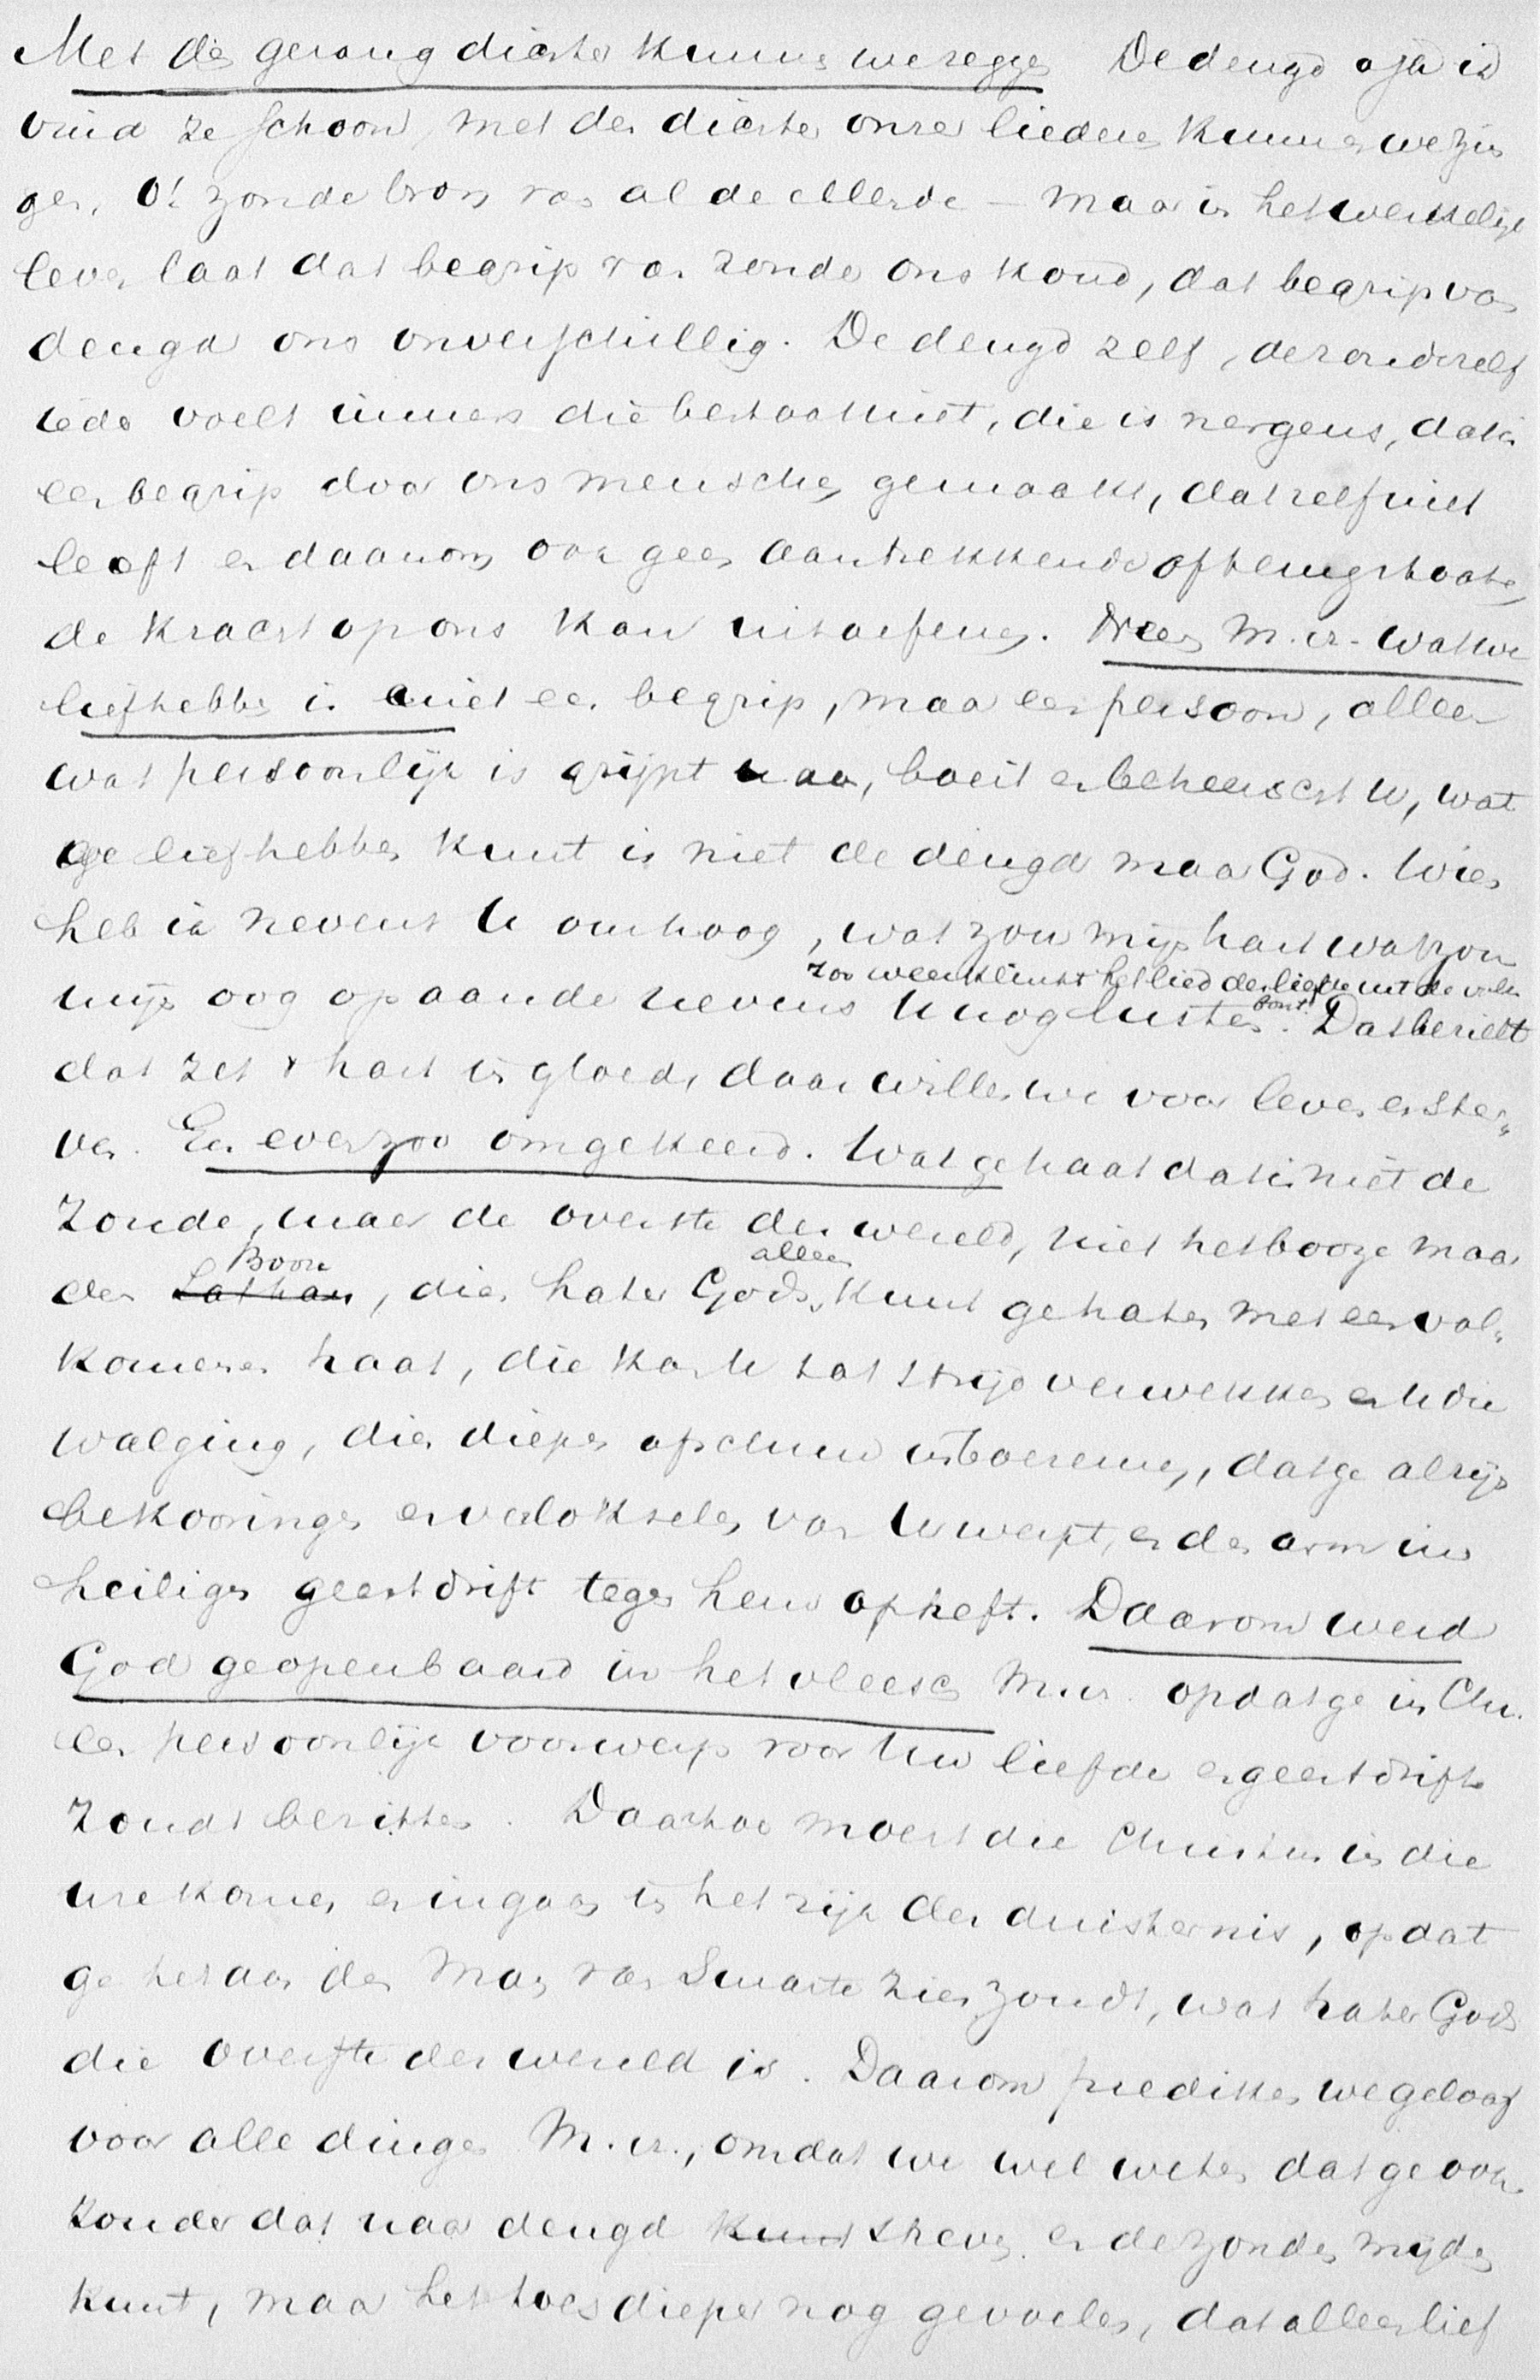 Met die gezang dichter kunnen we zeggen De deugd o ja ik
vind ze schoon, met den dichter onzer liederen kunnen we zin
gen, O! zonde bron van al de ellende – maar in het werkelijk
leven laat dat begrip van zonde ons koud, dat begrip van
deugd ons onverschillig. De deugd zelf, de zonde zelf
ieder voelt immers die bestaat niet, die is nergens, dat is
een begrip door ons menschen gemaakt, dat zelf niet
leeft en daarom ook geen aantrekkende of terugstooten
de kracht op ons kan uitoefenen. Neen M. vr. wat we
liefhebben is niet een begrip, maar een persoon, alleen
wat persoonlijk is grijpt u aan, boeit en beheerscht U, wat
ge liefhebben kunt is niet de deugd maar God. Wien
heb ik nevens U omhoog, wat zou mijn hart wat zou
zoo weerklinkt het lied der liefde uit de volle
mijn oog op aarde nevens U nog lusten. borst. Dat bezielt
dat zet 't hart in gloed, daar willen we voor leven en ster„
ven. En evenzoo omgekeerd. Wat ge haat dat is niet de
zonde, maar de overste der wereld, niet het booze maar
Booze alleen
den Sathan, dien hater Gods, kunt ge haten met een vol„
komenen haat, die kan U tot strijd verwekken en U die
walging, dien diepen afschuw inboezemen, dat ge al zijn
bekooringen en verlokselen van U werpt, en den arm in
heilige geestdrift tegen hem opheft. Daarom werd
God geopenbaard in het vleesch M. vr. opdat ge in Chr.
een persoonlijk voorwerp voor Uw liefde en geestdrift
zoudt bezitten. Daartoe moest die Christus in die
ure komen en ingaan in het rijk der duisternis, opdat
ge het aan den Man van Smarte zien zoudt, wat hater Gods
die overste der wereld is. Daarom prediken we geloof
voor alle dingen M. vr., omdat we wel weten dat ge ook
zonder dat naar deugd kunt streven en de zonde mijden
kunt, maar het toch dieper nog gevoelen, dat alleen lief